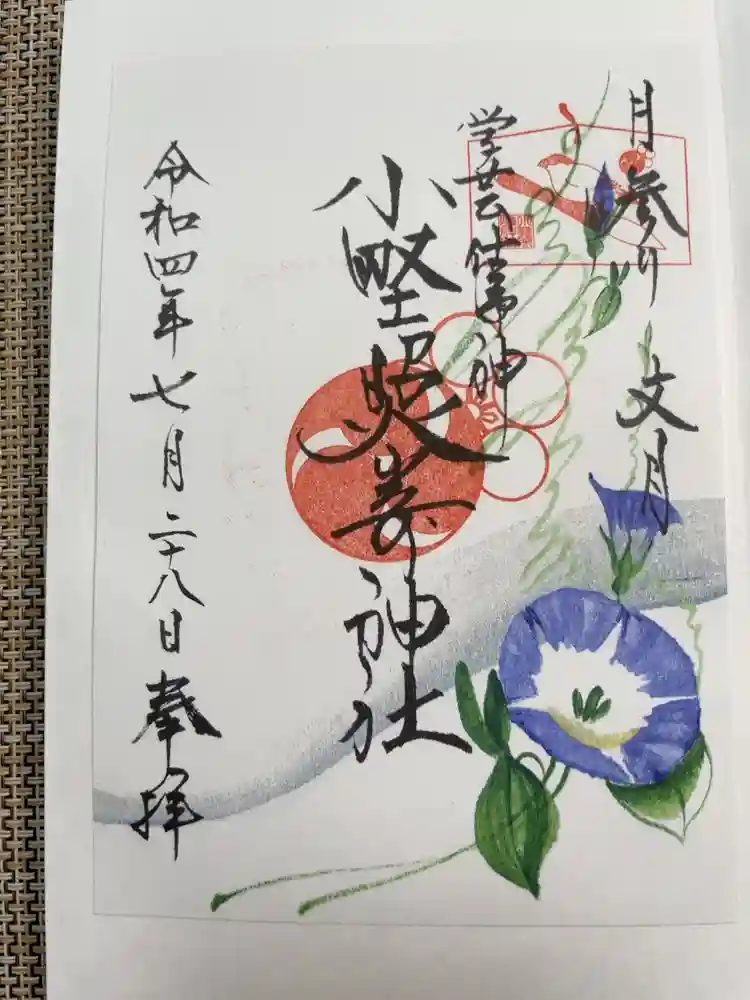 月参り 文月
学芸仕事神
小野照崎神社
令和四年七月二十八日奉拝